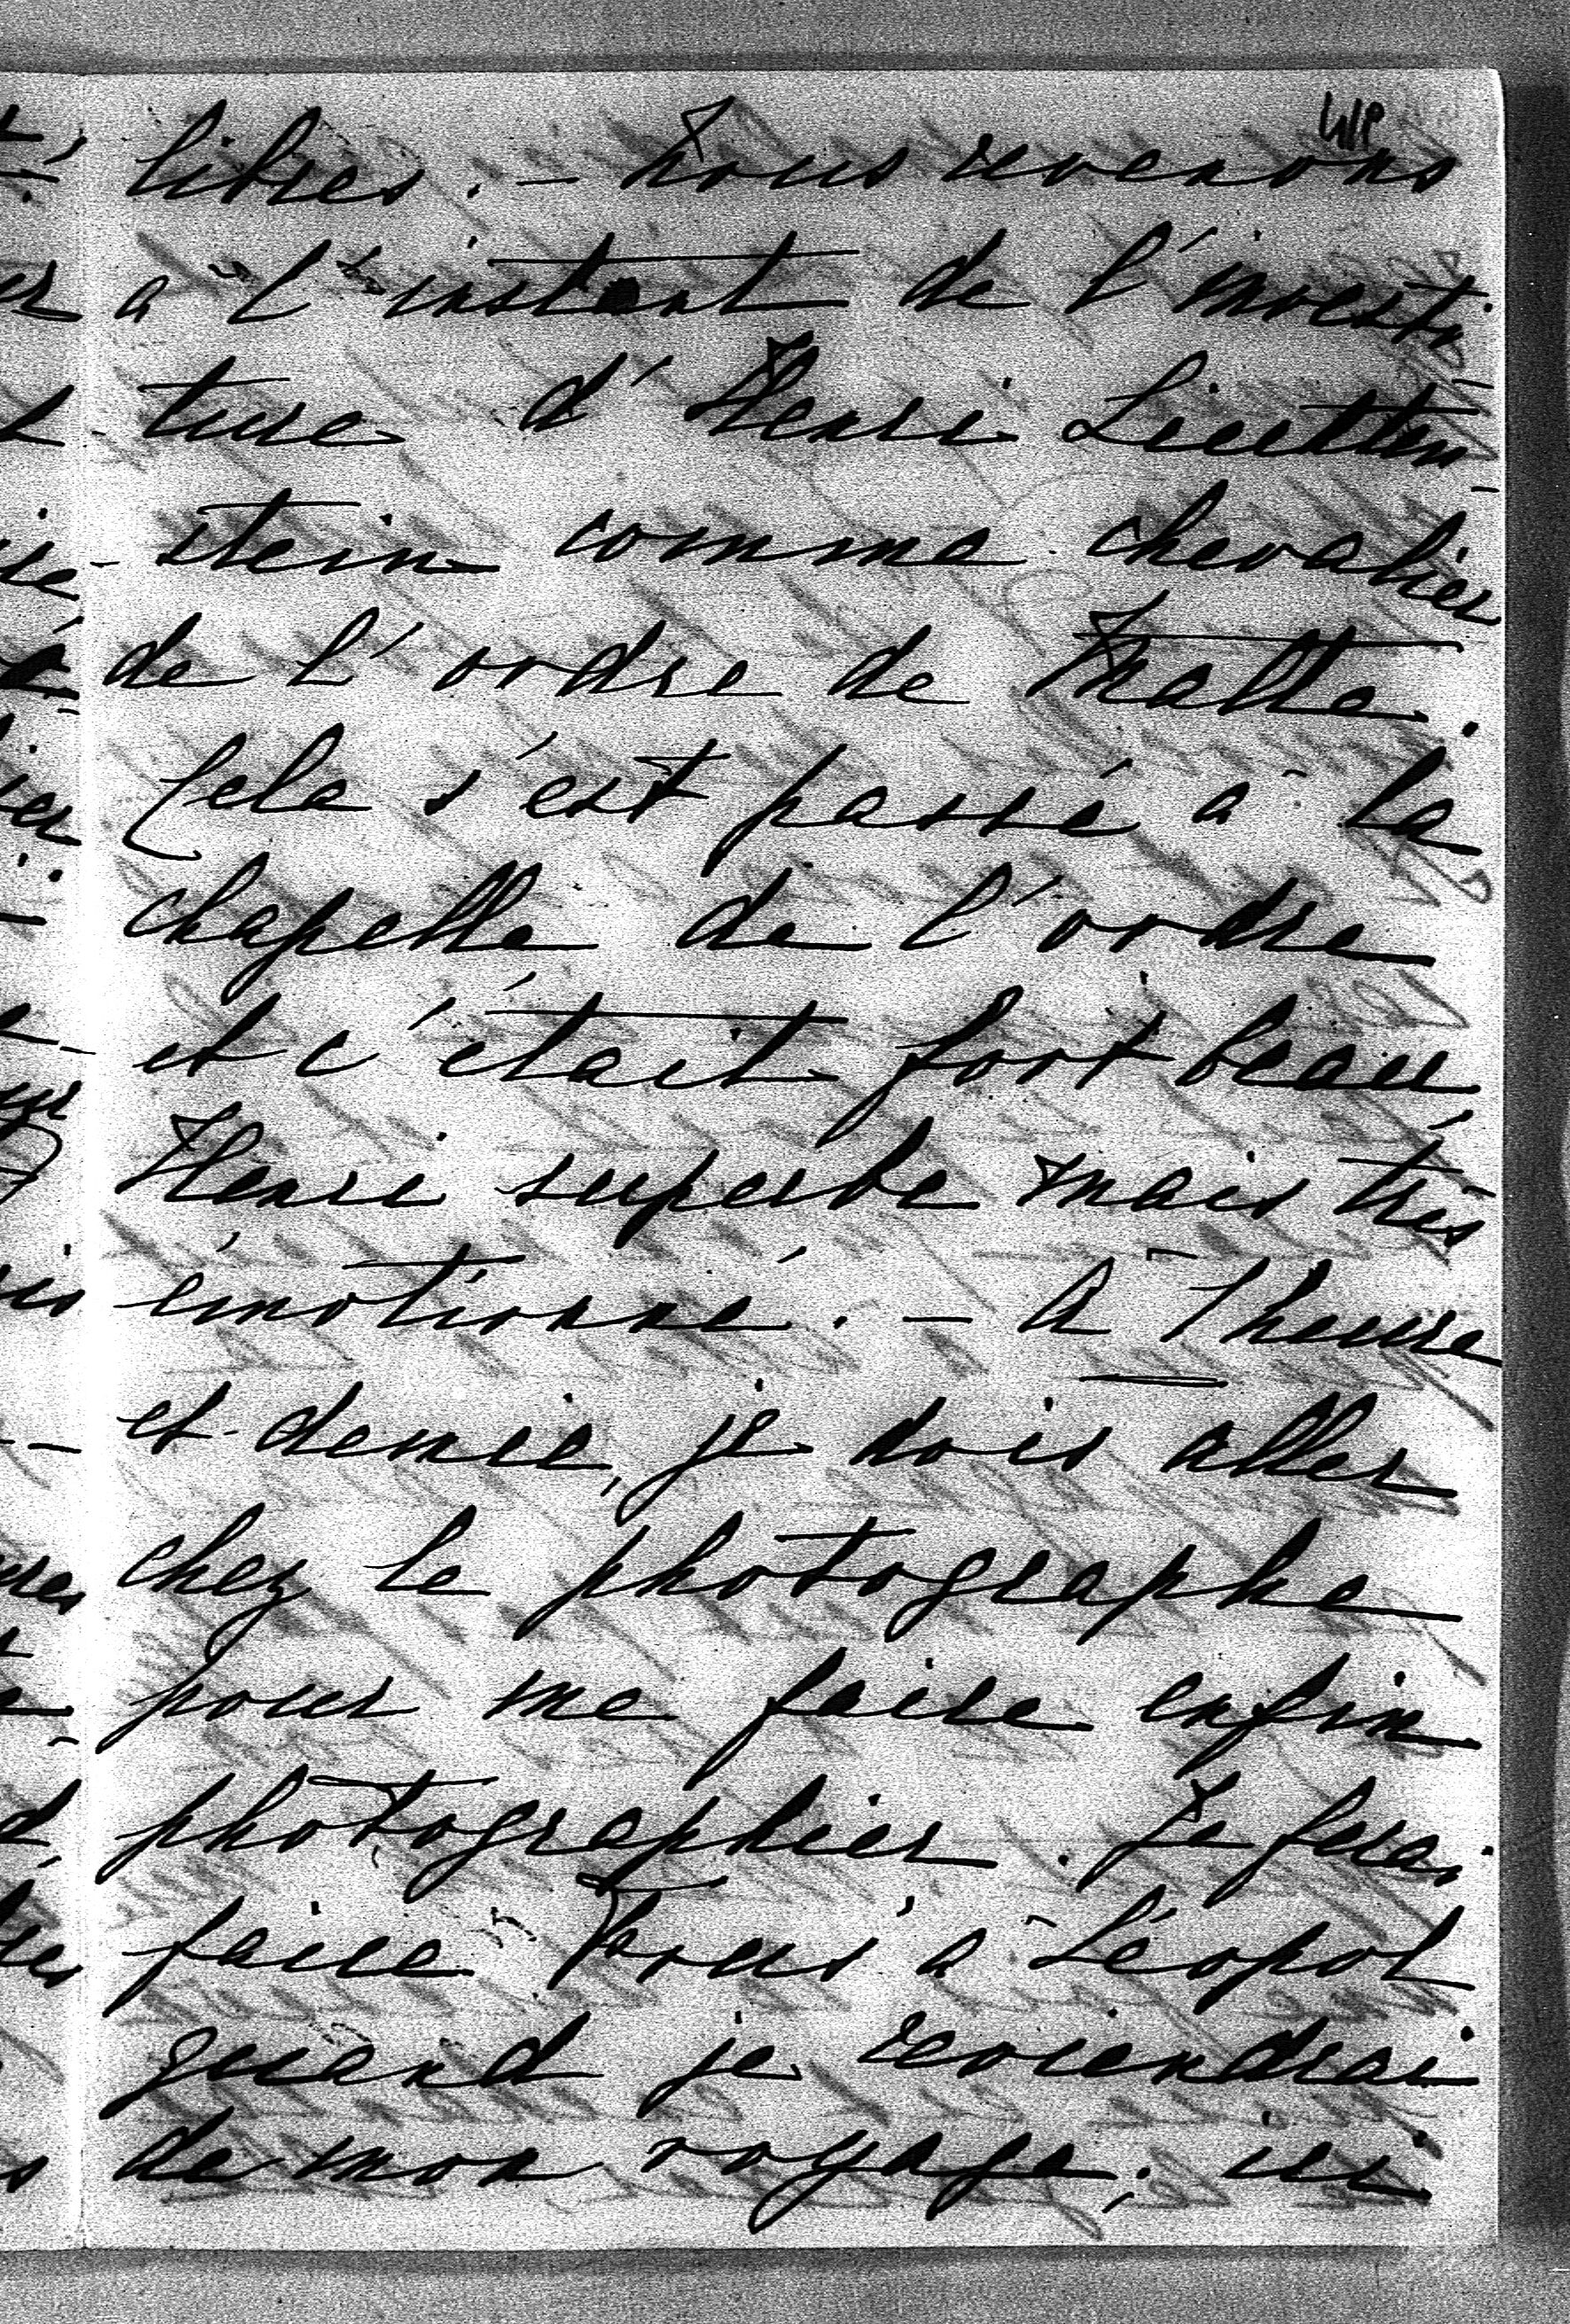 libres. – Nous revenons
à l'instant de l'investi
ture d'Henri Liechten-
stein comme chevalier
de l'ordre de Malte.
Cela s'est passé à la
chapelle de l'ordre
et c'était fort beau
Henri superbe mais très
émotionné. – A 1 heure
et demie, je dois aller
chez le photographe
pour me faire enfin
photographier. Je ferai
faire Vous à Léopol
quand je reviendrai
de mon voyage; ici